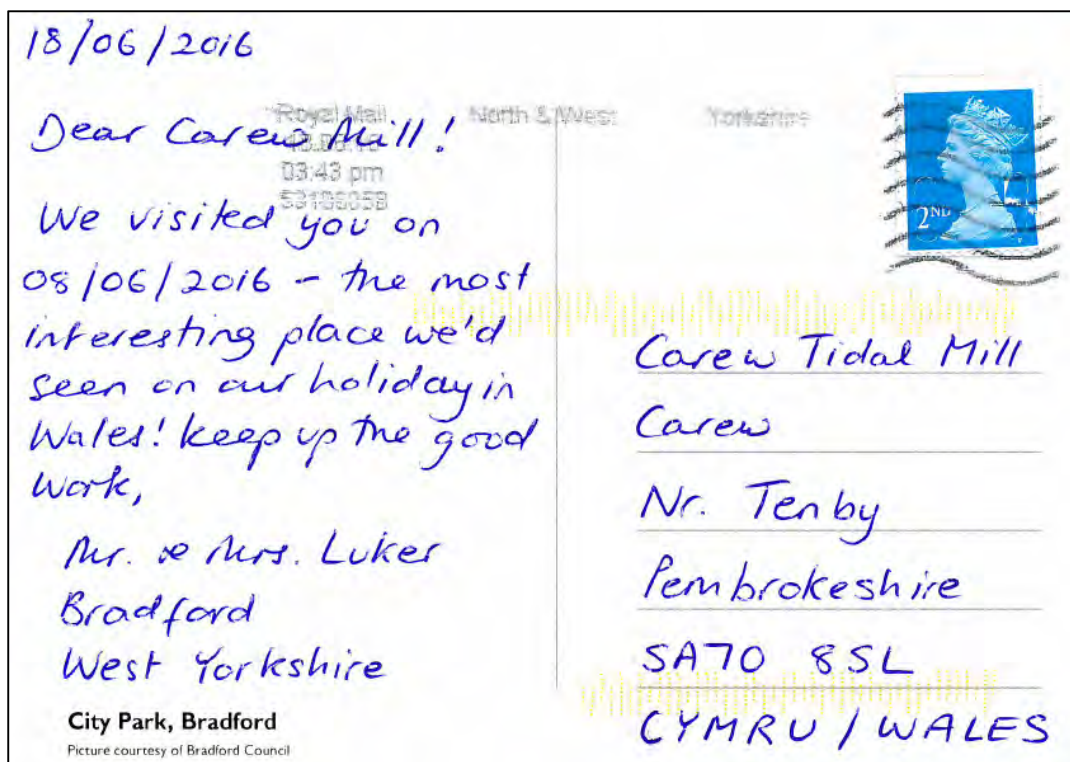 18/06/2016
Royal Mail
North & West
Yorkshire
Dear Carew Mill!
03:43 pm
We visited you on
08/06/2016 – the most
interesting place we'd
seen on our holiday in
Wales! keep up the good
work,
Mr. & Mrs. Luker
Bradford
West Yorkshire
City Park, Bradford
Picture courtesy of Bradford Council
2ND
Carew Tidal Mill
Carew
Nr. Tenby
Pembrokeshire
SA70 8SL
CYMRU / WALES